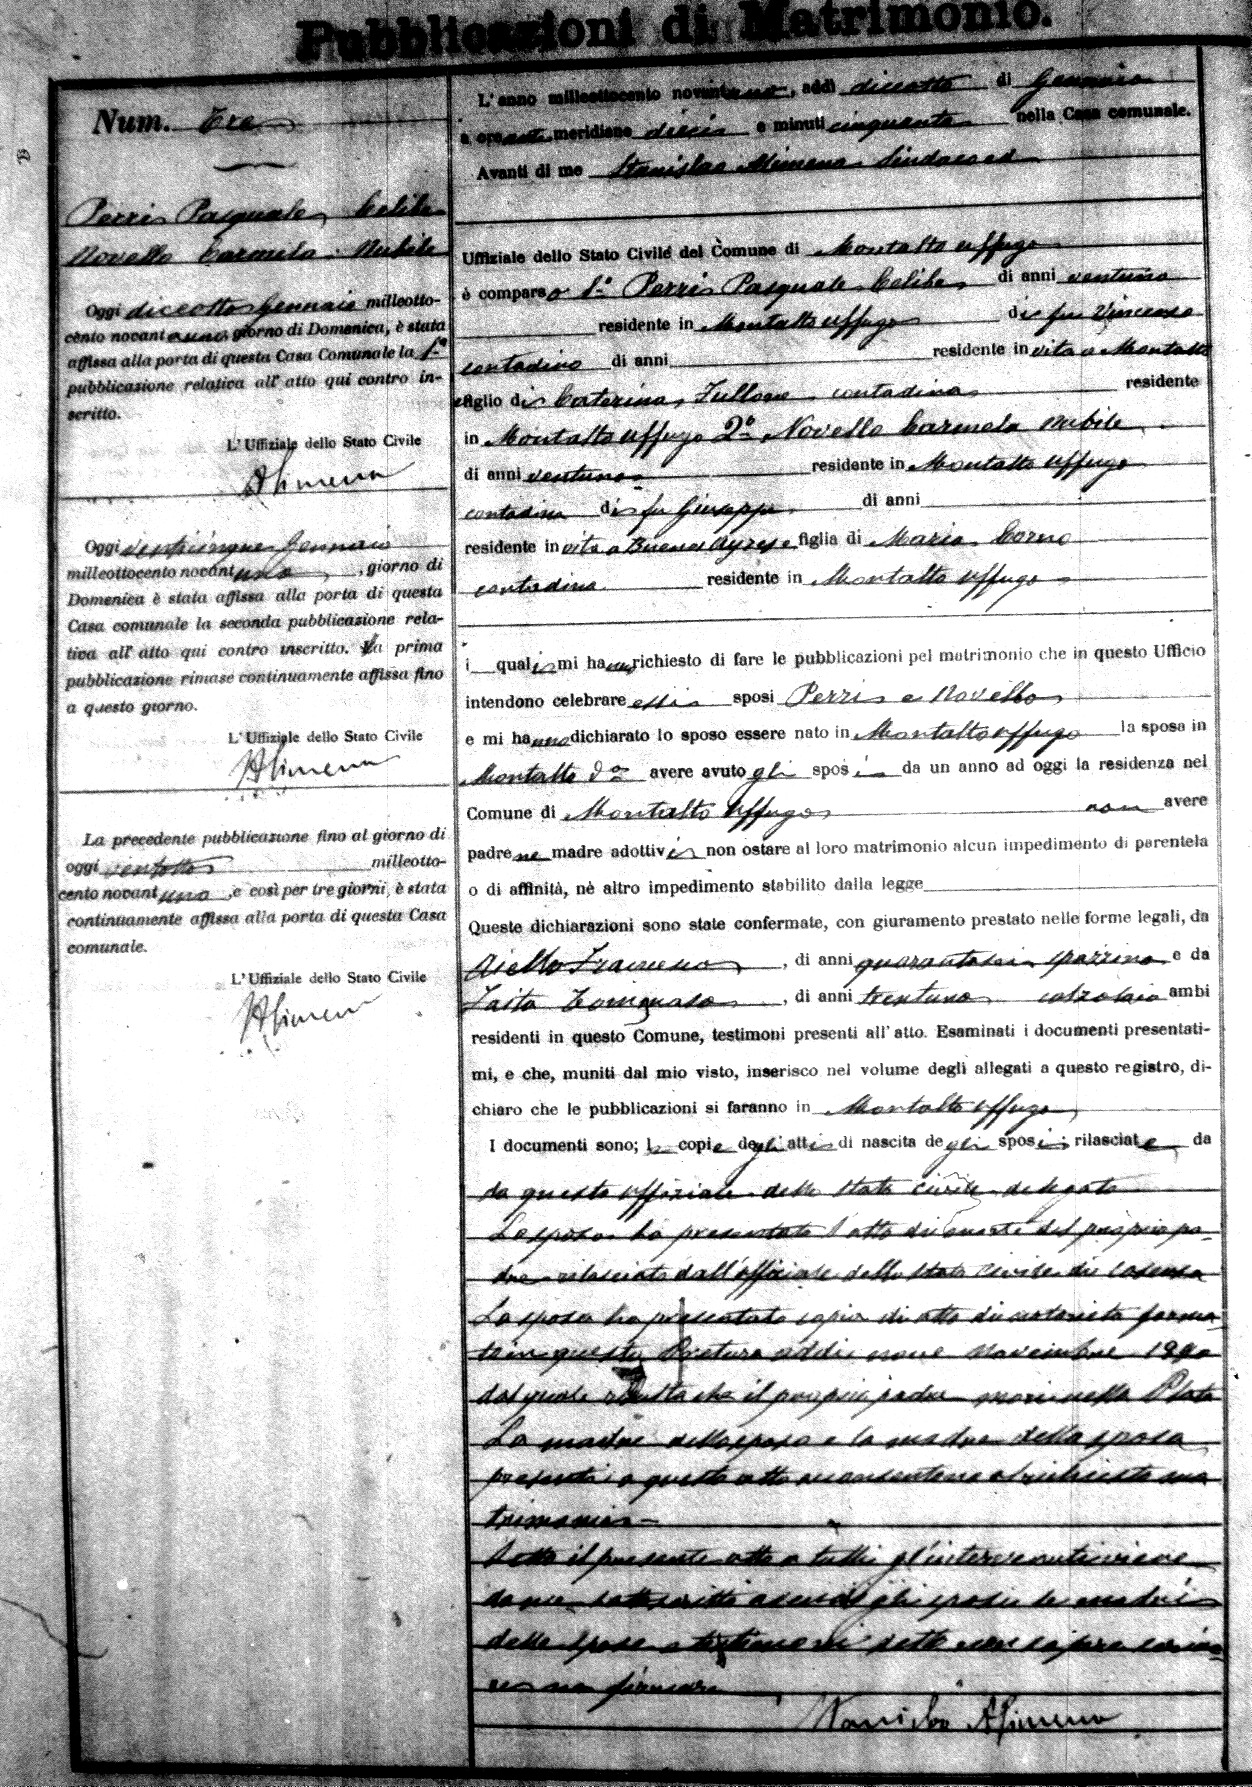 Pubblicazioni di Matrimonio.
Num. Tre
Perri Pasquale, Celibe
Novello Carmela Nubile
Oggi diciotto Gennaio milleotto-
cento novantauno giorno di Domenica, è stata
affissa alla porta di questa Casa Comunale la 1a
pubblicazione relativa all' atto qui contro in-
scritto.
L' Uffiziale dello Stato Civile
Alimena
Oggi venticinque Gennaio
milleottocento novantuno, giorno di
Domenica è stata affissa alla porta di questa
Casa comunale la seconda pubblicazione rela-
tiva all' atto qui contro inscritto. La prima
pubblicazione rimase continuamente affissa fino
a questo giorno.
L' Uffiziale dello Stato Civile
Alimena
La precedente pubblicazione fino al giorno di
oggi ventotto milleotto-
cento novantuno, e così per tre giorni, è stata
continuamente affissa alla porta di questa Casa
comunale.
L' Uffiziale dello Stato Civile
Alimena
L' anno milleottocento novantuno, addì diciotto di Gennaio
a ore anti meridiane dieci e minuti cinquanta nella Casa comunale.
Avanti di me Stanislao Alimena Sindaco ed
Uffiziale dello Stato Civile del Comune di Montalto Uffugo
è comparso 1o Perri Pasquale Celibe di anni ventuno
residente in Montalto Uffugo di fu Vincenzo
contadino di anni residente in vita a Montalto
figlio di Caterina Fullone contadina residente
in Montalto Uffugo 2o Novello Carmela nubile
di anni ventuno residente in Montalto Uffugo
contadina di fu Giuseppe di anni
residente in vita a Buenos Ayres figlia di Maria Corno
contadina residente in Montalto Uffugo
i quali mi hanno richiesto di fare le pubblicazioni pel matrimonio che in questo Ufficio
intendono celebrare essi sposi Perri e Novello
e mi hanno dichiarato lo sposo essere nato in Montalto Uffugo la sposa in
Montalto do avere avuto gli sposi da un anno ad oggi la residenza nel
Comune di Montalto Uffugo non avere
padre ne madre adottivi non ostare al loro matrimonio alcun impedimento di parentela
o di affinità, nè altro impedimento stabilito dalla legge
Queste dichiarazioni sono state confermate, con giuramento prestato nelle forme legali, da
Aiello Francesco, di anni quarantasei spazzino e da
Zaita Tommaso, di anni trentuno calzolaio ambi
residenti in questo Comune, testimoni presenti all' atto. Esaminati i documenti presentati-
mi, e che, muniti dal mio visto, inserisco nel volume degli allegati a questo registro, di-
chiaro che le pubblicazioni si faranno in Montalto Uffugo
I documenti sono; le copie degli atti di nascita degli sposi rilasciate da
da questo uffiziale dello Stato civile delegato
Lo sposo ha presentato l'atto di morte del proprio pa-
dre rilasciato dall'uffiziale dello Stato Civile di Cosenza
La sposa ha presentato copia di atto di notorietà forma-
to in questa Pretura addì nove Novembre 1890
dal quale risulta che il proprio padre morì nella Plata
La madre dello sposo e la madre della sposa
presenti a questo atto acconsentono al richiesto ma
trimonio
Letto il presente atto a tutti gl'intervenuti viene
da me sottoscritto avendo gli sposi le madri
delle spose e testimoni detto non sapere scrive
re ne firmare
Stanislao Alimena